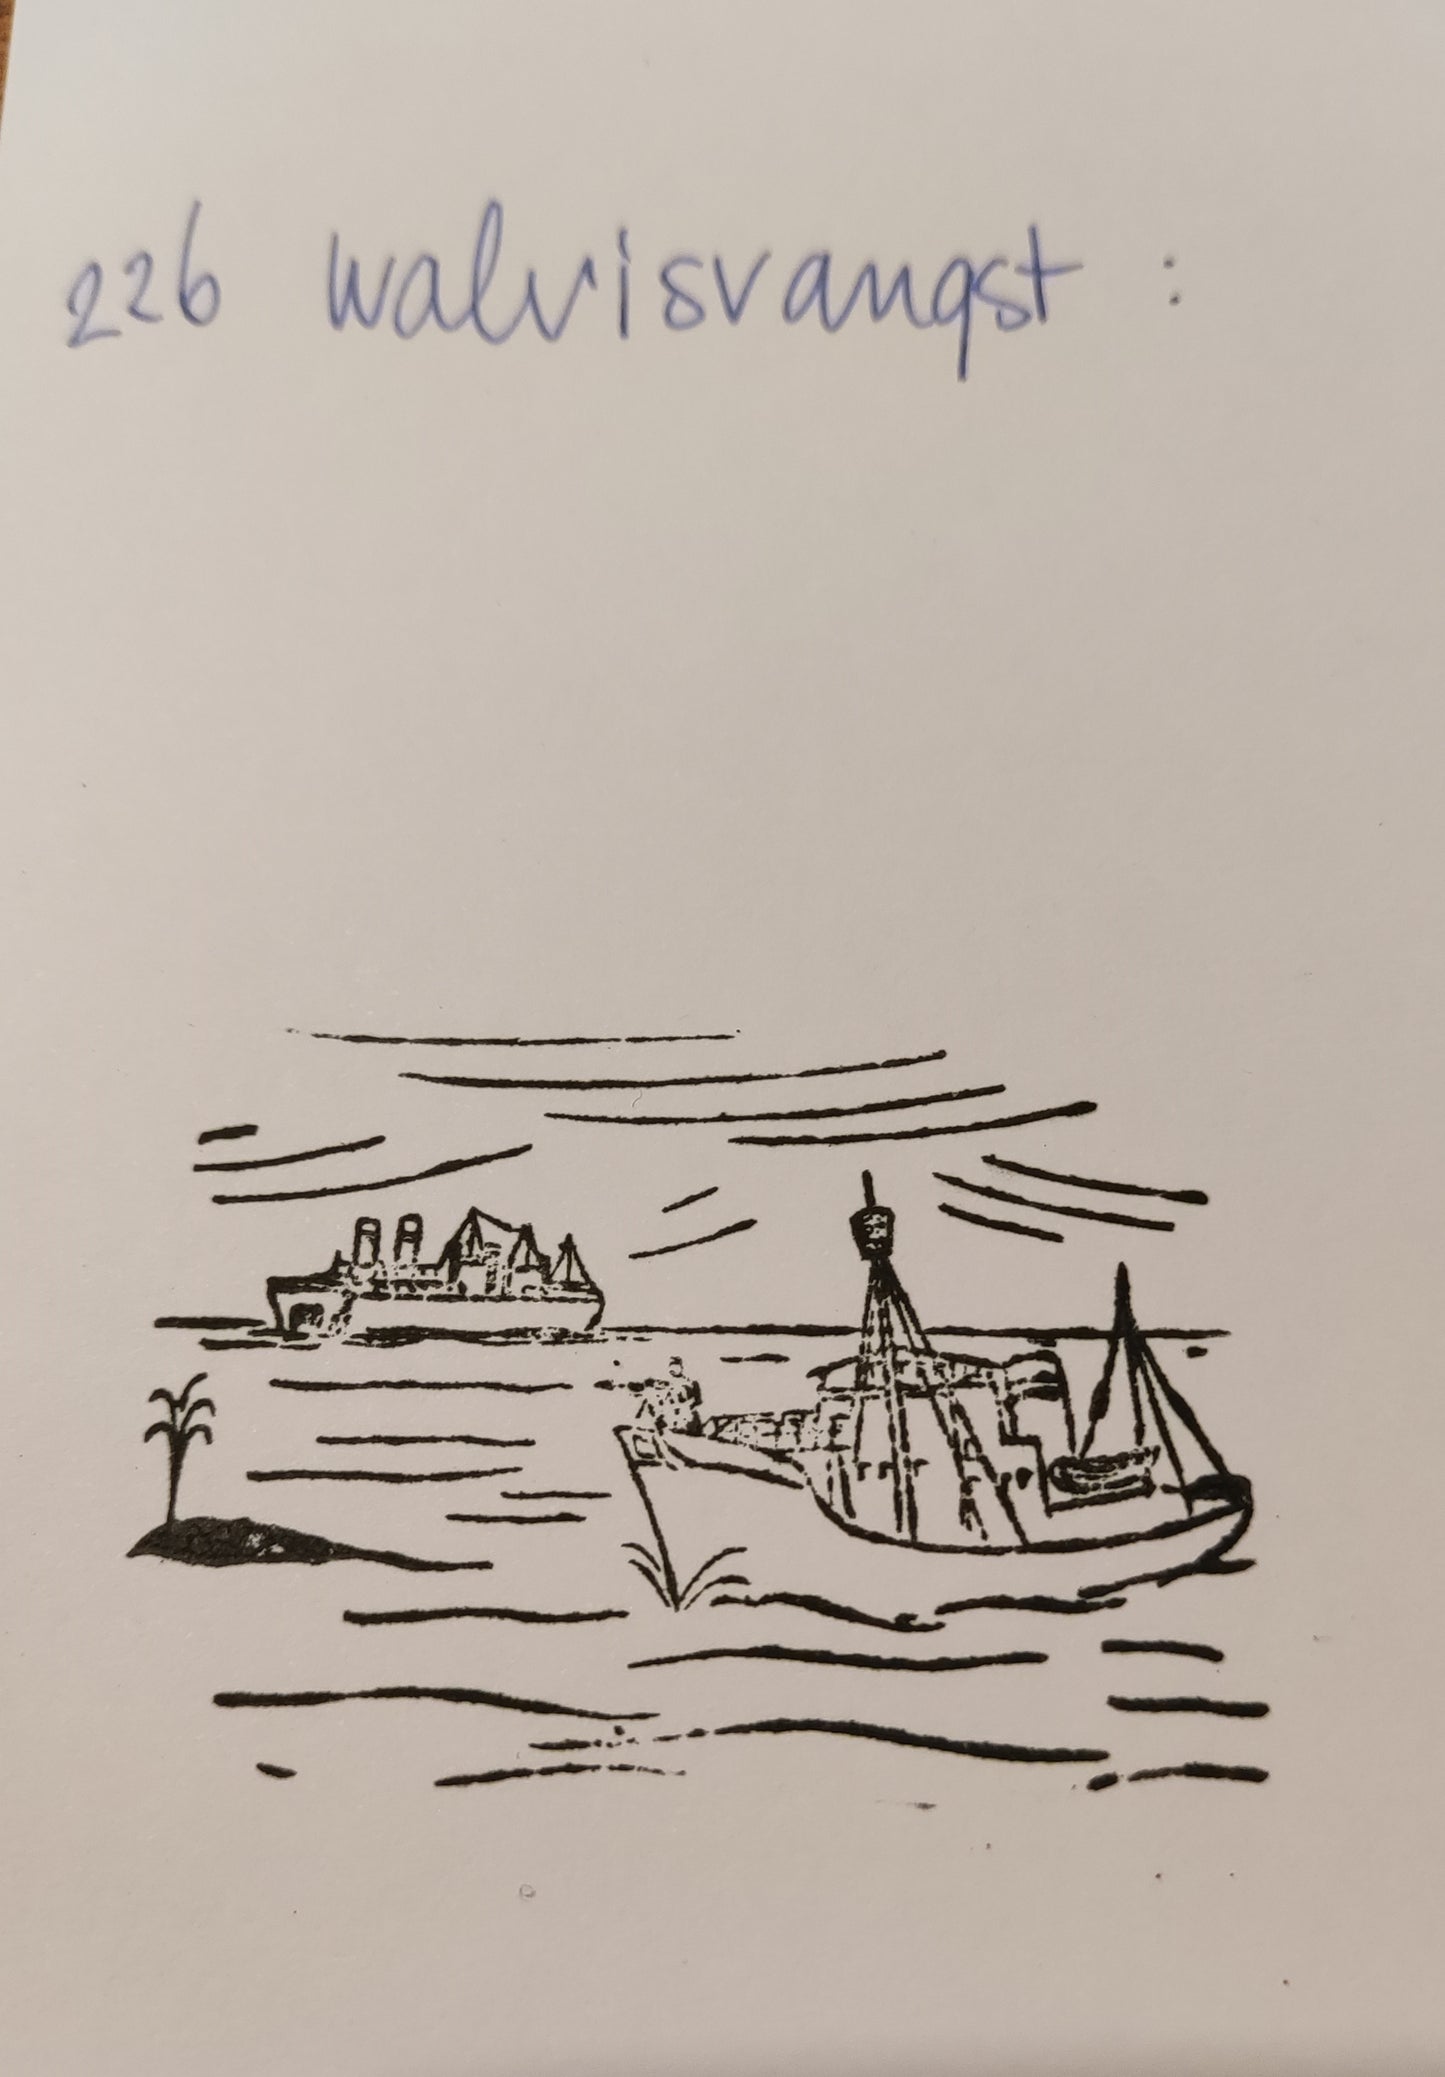 226 walvisvangst :